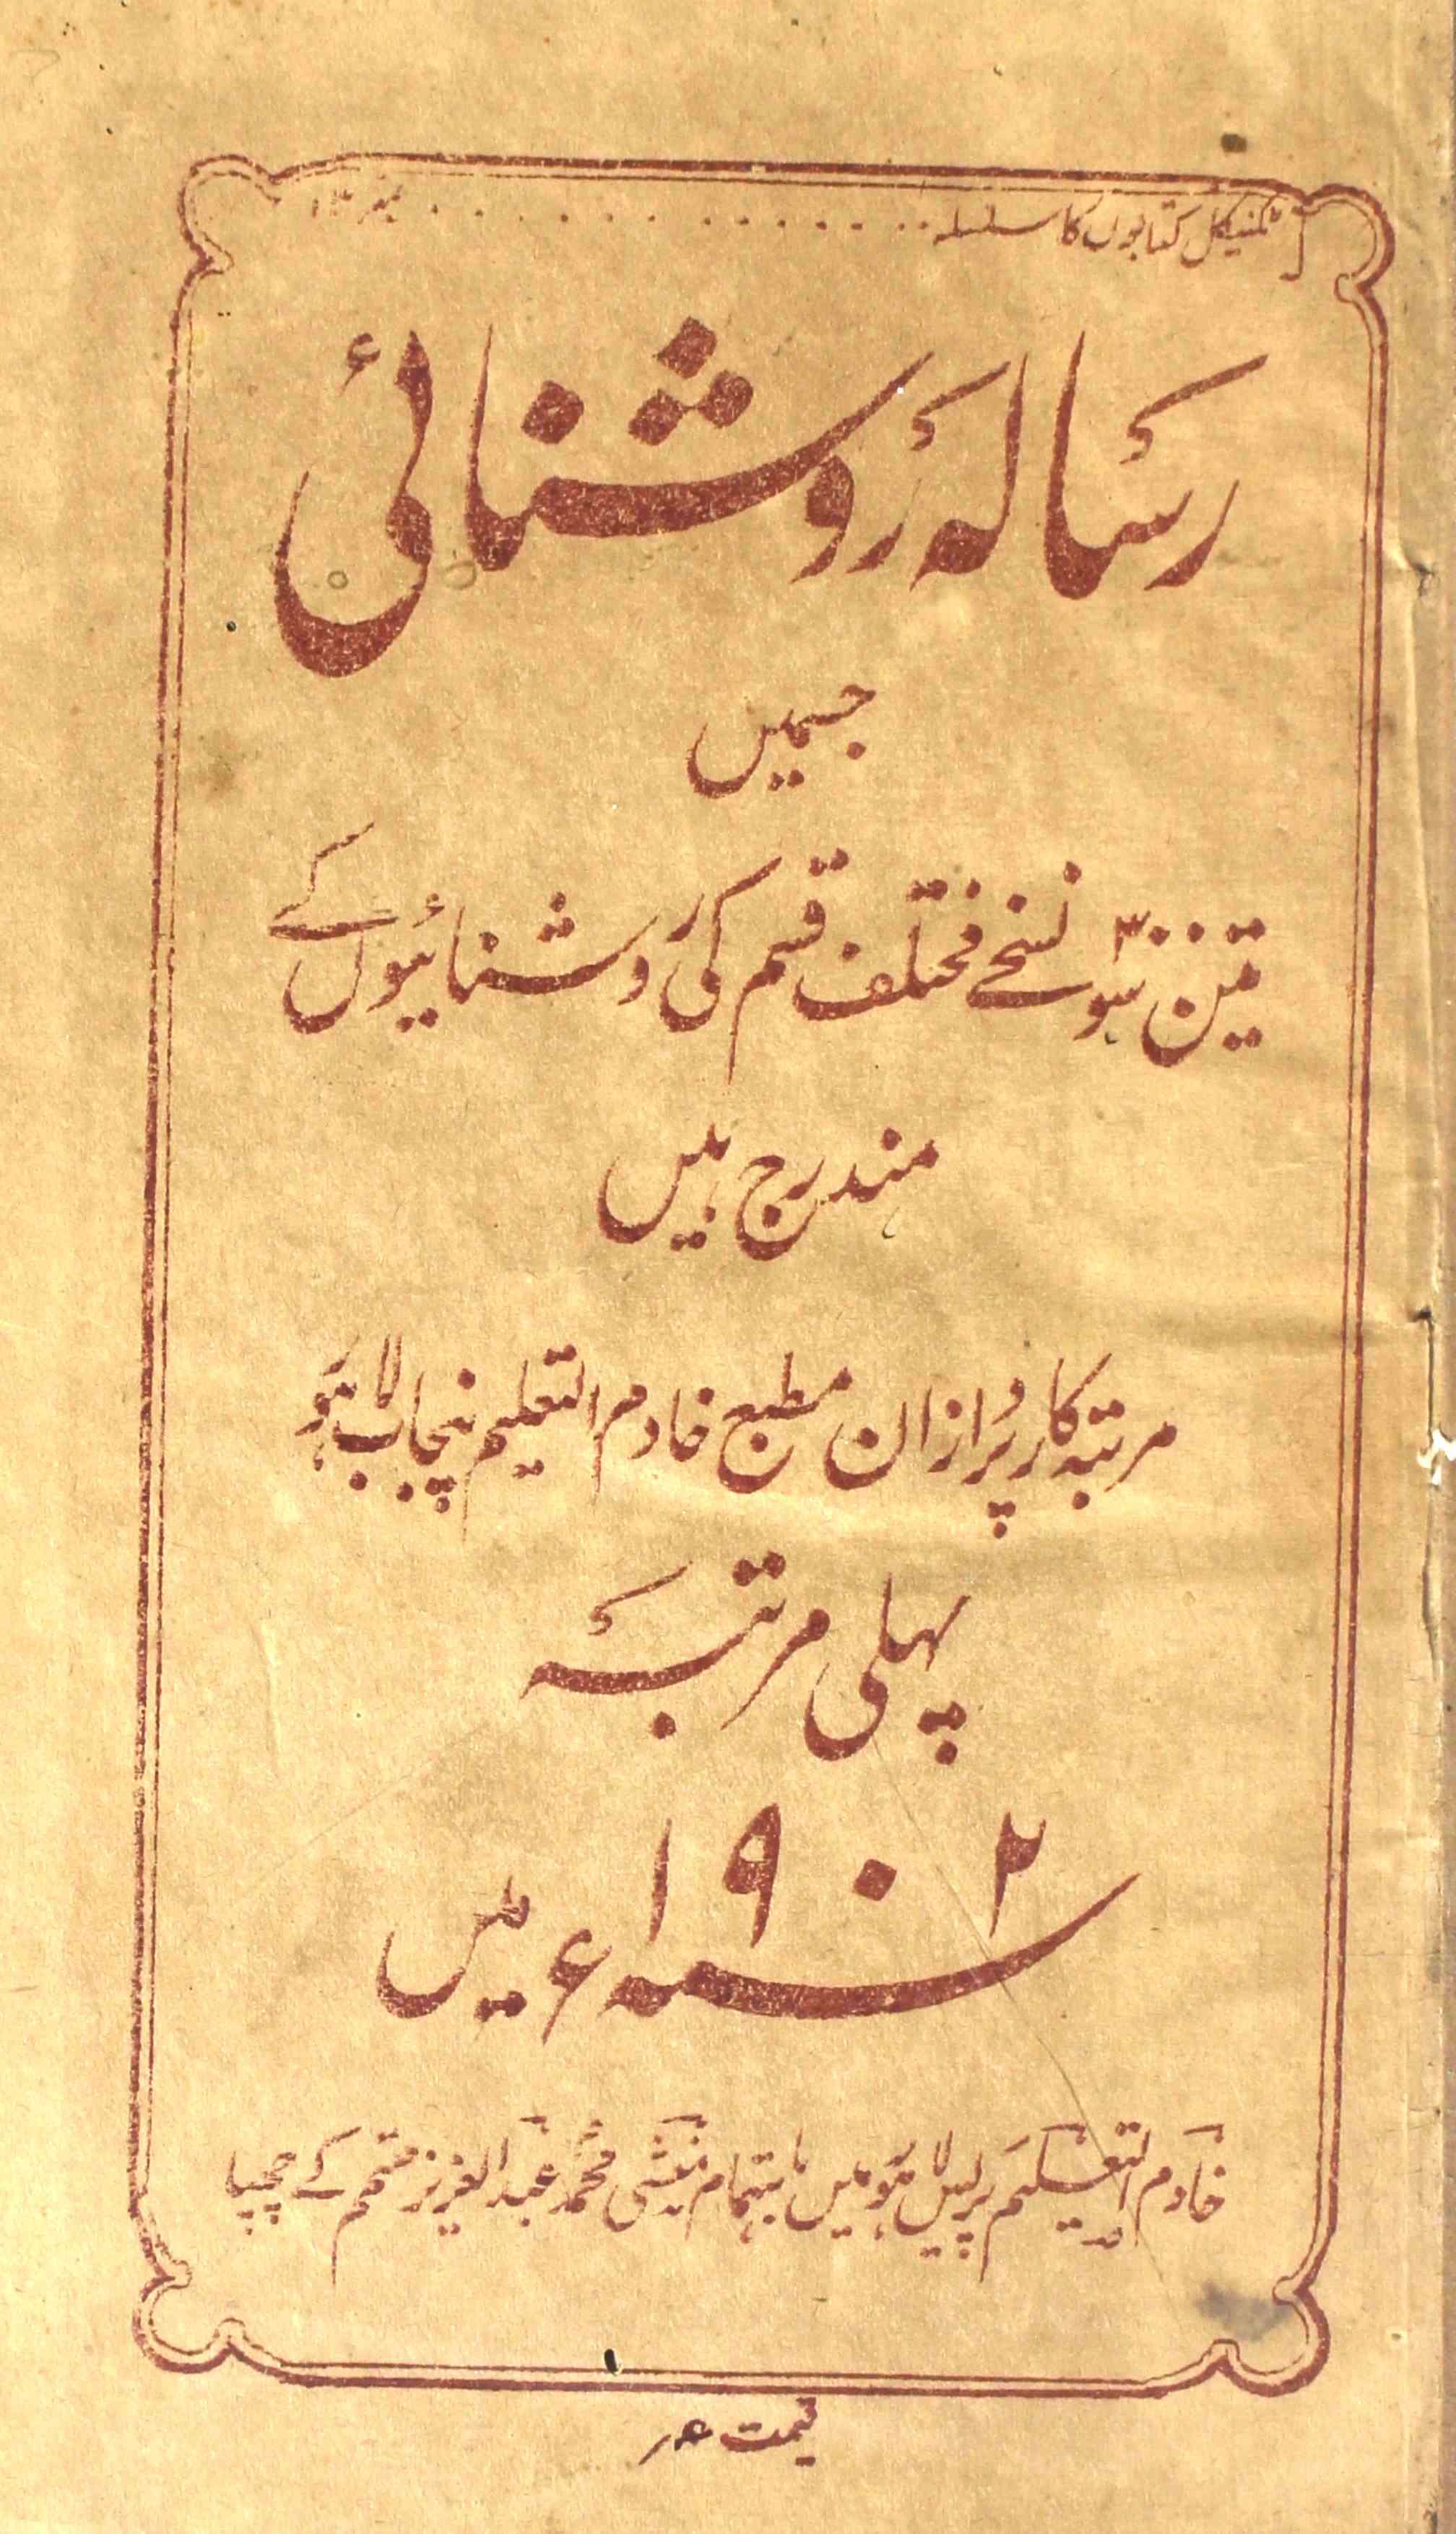 ٹکنیکل کتابوں کا سلسلہ . . . . . . . . . . . . . نمبر ۱۳
رسالہ روشنائی
جسمیں
تین سو ۳۰۰ نسخے مختلف قسم کی روشنائیوں کے
مندرج ہیں
مرتبہ کارپردازان مطبع خادم التعلیم پنجاب لاہور
پہلی مرتبہ
۱۹۰۲ء میں
خادم التعلیم پریس لاہور میں باہتمام منشی محمد عبد العزیز مہتمم کے چھپا
قیمت